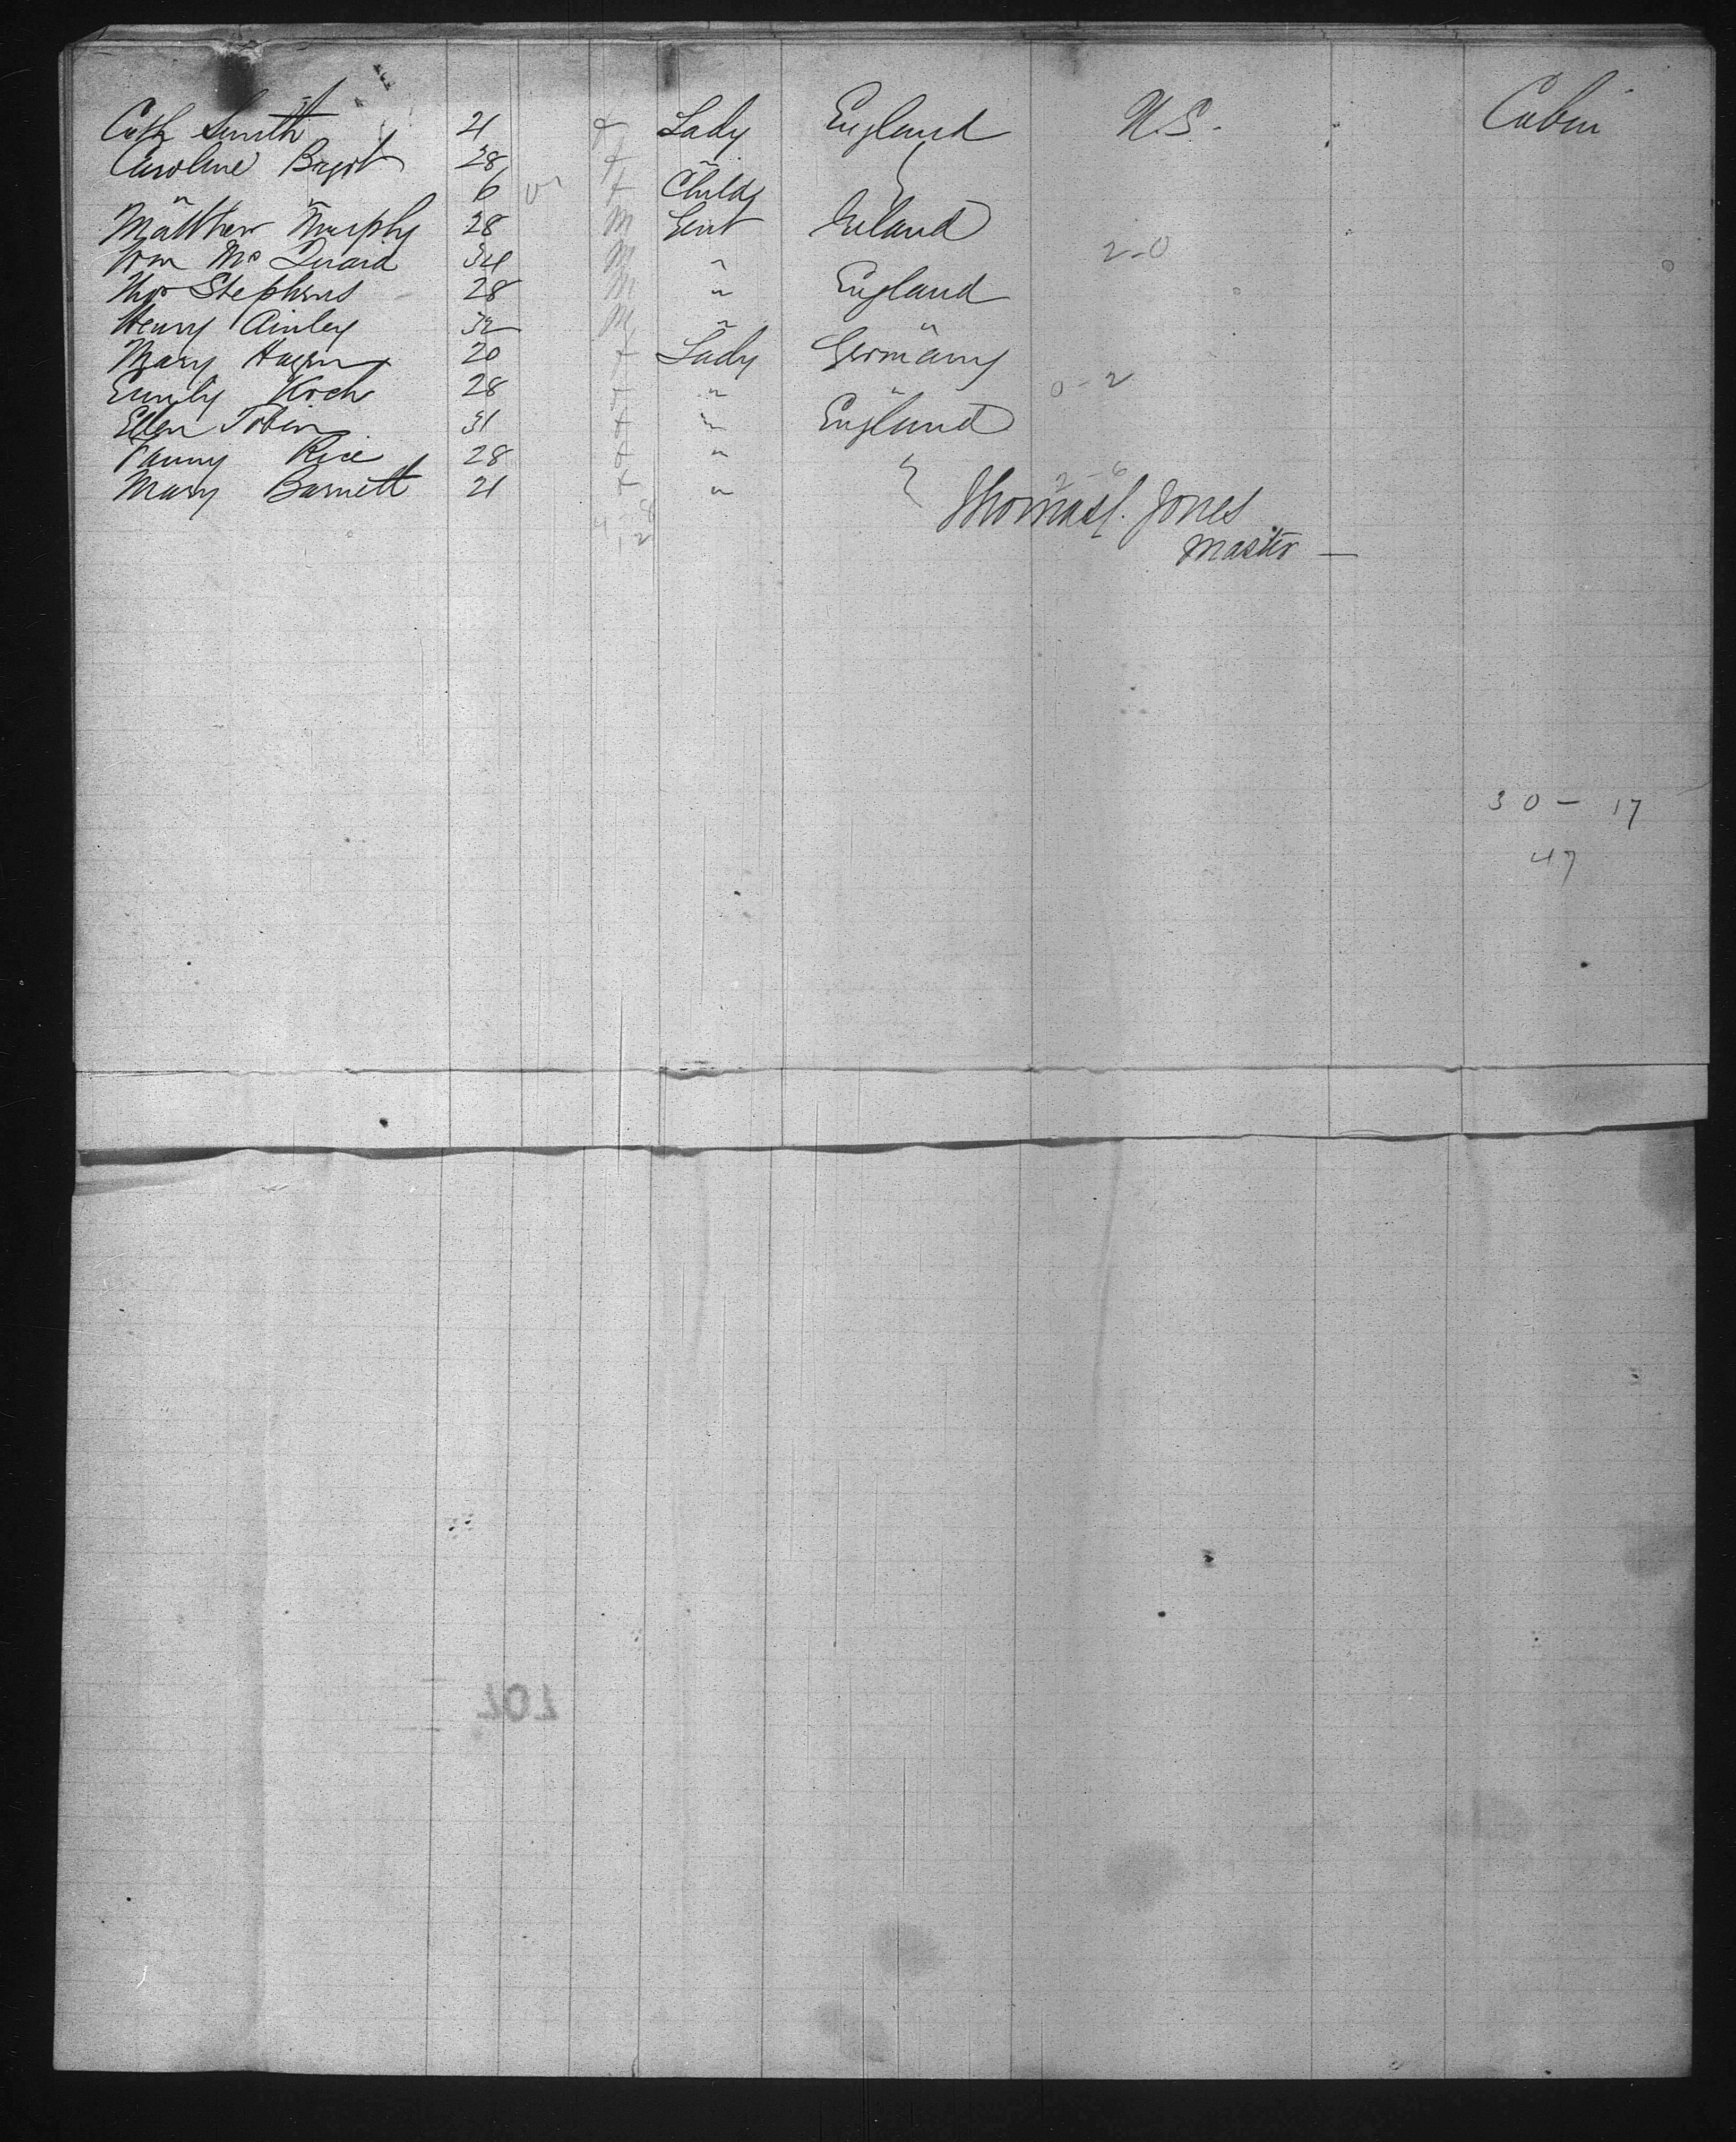 Cath Smith 21 f Lady England U.S. Cabin
Caroline Bryot 28 f "
" " 6 f Child
Matthew Murphy 28 M Gent Ireland
Wm Mc Quaid 34 M " 2-0
Thos Stephens 28 M " England
Henry Ainley 32 M " "
Mary Hagen 20 f Lady Germany
Emily Koch 28 f " " 0-2
Ellen Tobin 31 f " England
Fanny Rice 28 f "
Mary Barnett 21 f " 2-6
4-8
12
Thomas J. Jones
Master —
30 - 17
47
707